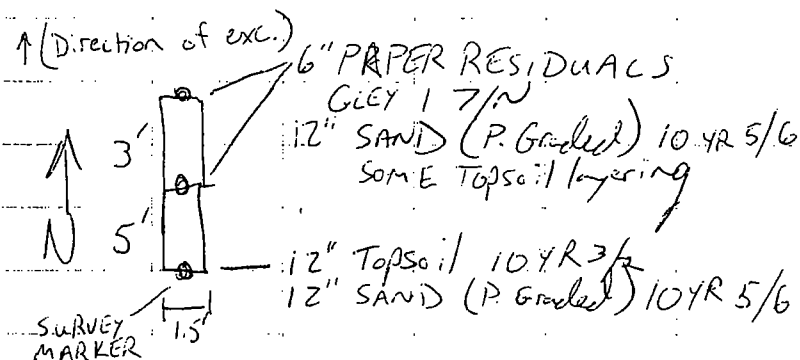 ↑ (Direction of exc.)
6" PAPER RESIDUALS
GLEY 1 7/N
12" SAND (P. Graded) 10 YR 5/6
SOME Topsoil layering
3'
N
5'
12" Topsoil 10 YR 3/2
12" SAND (P. Graded) 10 YR 5/6
SURVEY
MARKER
1.5'